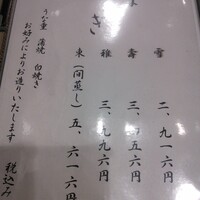 き
雪 二、九一六円
壽 三、四五六円
雅 三、九九六円
東(間蒸し) 五、六一六円
うな重 蒲焼 白焼き
お好みによりお造りいたします
税込み